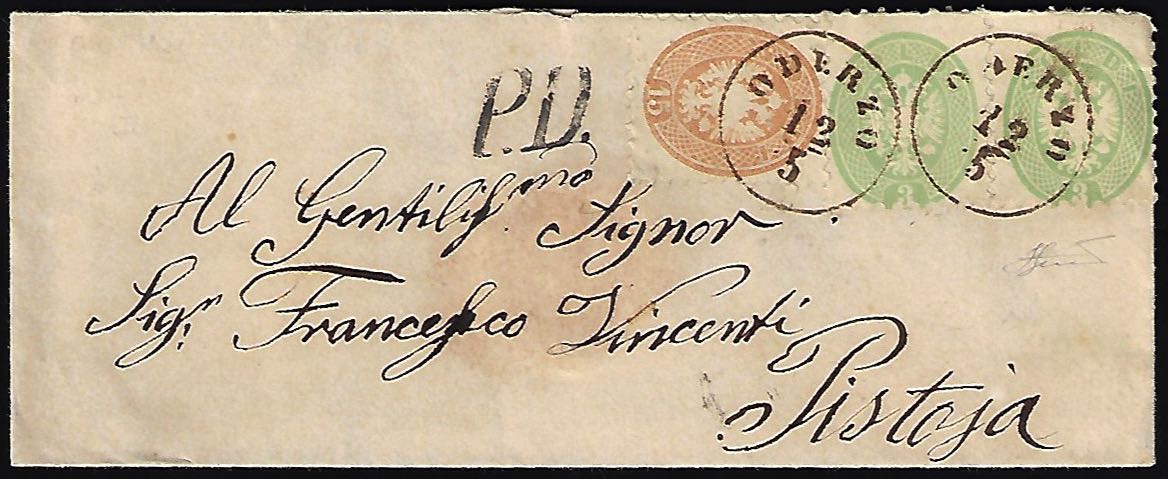 P.D.
15
ODERZO
12
5
3
ODERZO
12
5
3
Al Gentiliſs.mo Signor
Sigr. Franceſco Vincenti
Pistoja